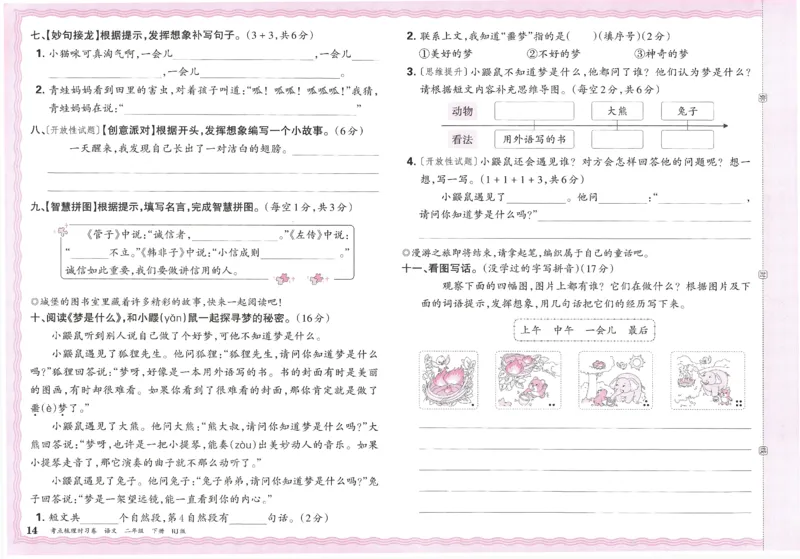 七、【妙句接龙】根据提示,发挥想象补写句子。(3+3,共6分)
1. 小猫咪可真淘气啊,一会儿________,一会儿________
________,一会儿________。
2. 青蛙妈妈看到田里的害虫,对着孩子叫道:“呱! 呱呱! 呱呱呱!”我猜,
青蛙妈妈在说:“________”
八、〔开放性试题〕【创意派对】根据开头,发挥想象编写一个小故事。(6分)
一天醒来,我发现自己长出了一对洁白的翅膀。________
九、【智慧拼图】根据提示,填写名言,完成智慧拼图。(每空1分,共3分)
《管子》中说:“诚信者,________。”《左传》中说:
“________不立。”《韩非子》中说:“小信成则________。”
诚信如此重要,我们要做讲信用的人。
◎城堡的图书室里藏着许多精彩的故事,快来一起阅读吧!
十、阅读《梦是什么》,和小鼹(yǎn)鼠一起探寻梦的秘密。(16分)
小鼹鼠听到别人说自己做了个好梦,可他不知道梦是什么。
小鼹鼠遇见了狐狸先生。他问狐狸:“狐狸先生,请问你知道梦是什么
吗?”狐狸回答说:“梦呀,好像是一本用外语写的书。书的封面有时是美丽
的图画,有时却很难看。如果你看到了很难看的封面,那你肯定就是做了
噩(è)梦了。”
小鼹鼠遇见了大熊。他问大熊:“熊大叔,请问你知道梦是什么吗?”大
熊回答说:“梦呀,也许是一把小提琴,能奏(zòu)出美妙动人的音乐。如果
小提琴走音了,那它演奏的曲子就不那么动听了。”
小鼹鼠遇见了兔子。他问兔子:“兔子弟弟,请问你知道梦是什么吗?”兔
子回答说:“梦是一架望远镜,能一直看到你的内心。”
1. 短文共________个自然段,第4自然段有________句话。(2分)
14 考点梳理时习卷 语文 二年级 下册 RJ版
2. 联系上文,我知道“噩梦”指的是( )(填序号)(2分)
①美好的梦 ②不好的梦 ③神奇的梦
3. 〔思维提升〕小鼹鼠不知道梦是什么,他都问了谁? 他们认为梦是什么?
请根据短文内容补充思维导图。(每空2分,共6分)
动物 大熊 兔子
看法 用外语写的书
4. 〔开放性试题〕小鼹鼠还会遇见谁? 对方会怎样回答他的问题呢? 想一
想,写一写。(1+1+1+3,共6分)
小鼹鼠遇见了________。他问________:“________,
请问你知道梦是什么吗?”________
◎漫游之旅即将结束,请拿起笔,编织属于自己的童话吧。
十一、看图写话。(没学过的字写拼音)(17分)
观察下面的四幅图,图片上都有谁? 它们在做什么? 根据图片及下
面的词语提示,发挥想象,用几句话把它们的经历写下来。
上午 中午 一会儿 最后